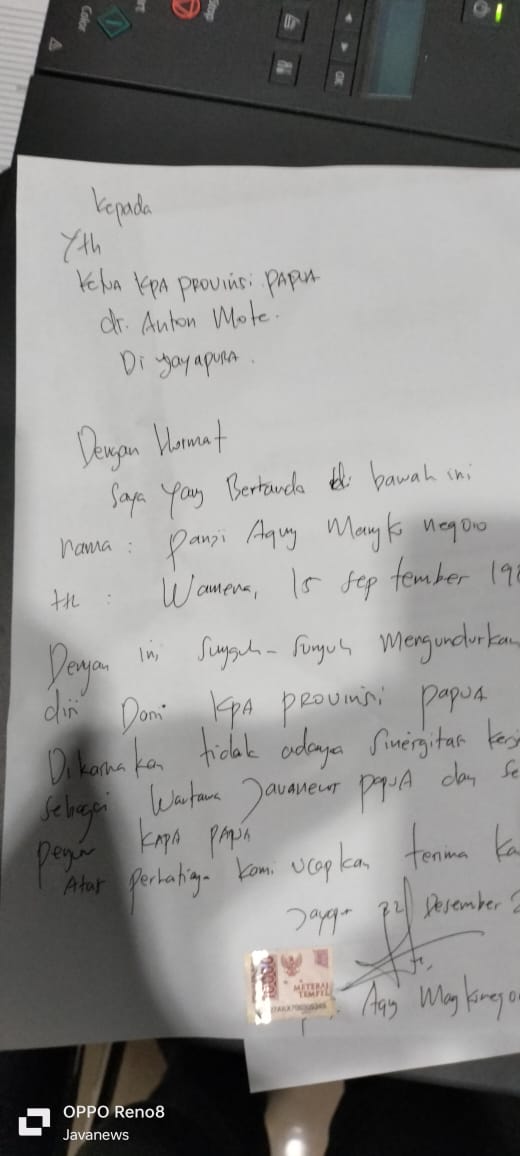 Stop
Color
OK
Kepada
Yth
Ketua KPA PROVINSI PAPUA
dr. Anton Mote.
Di Jayapura.
Dengan Hormat
Saya Yang Bertanda di bawah ini
nama : Panji Agung Mangk negoro
ttl : Wamena, 15 September 19
Dengan ini sungguh-sungguh Mengundurkan
diri Dari KPA PROVINSI PAPUA
Dikarnakan tidak adanya Sinergitas
Sebagai PAPUA dan
KAPA PAPUA
Atas perhatian kami ucapkan terima
22 Desember
10000
METERAI
TEMPEL
OPPO Reno8
Javanews